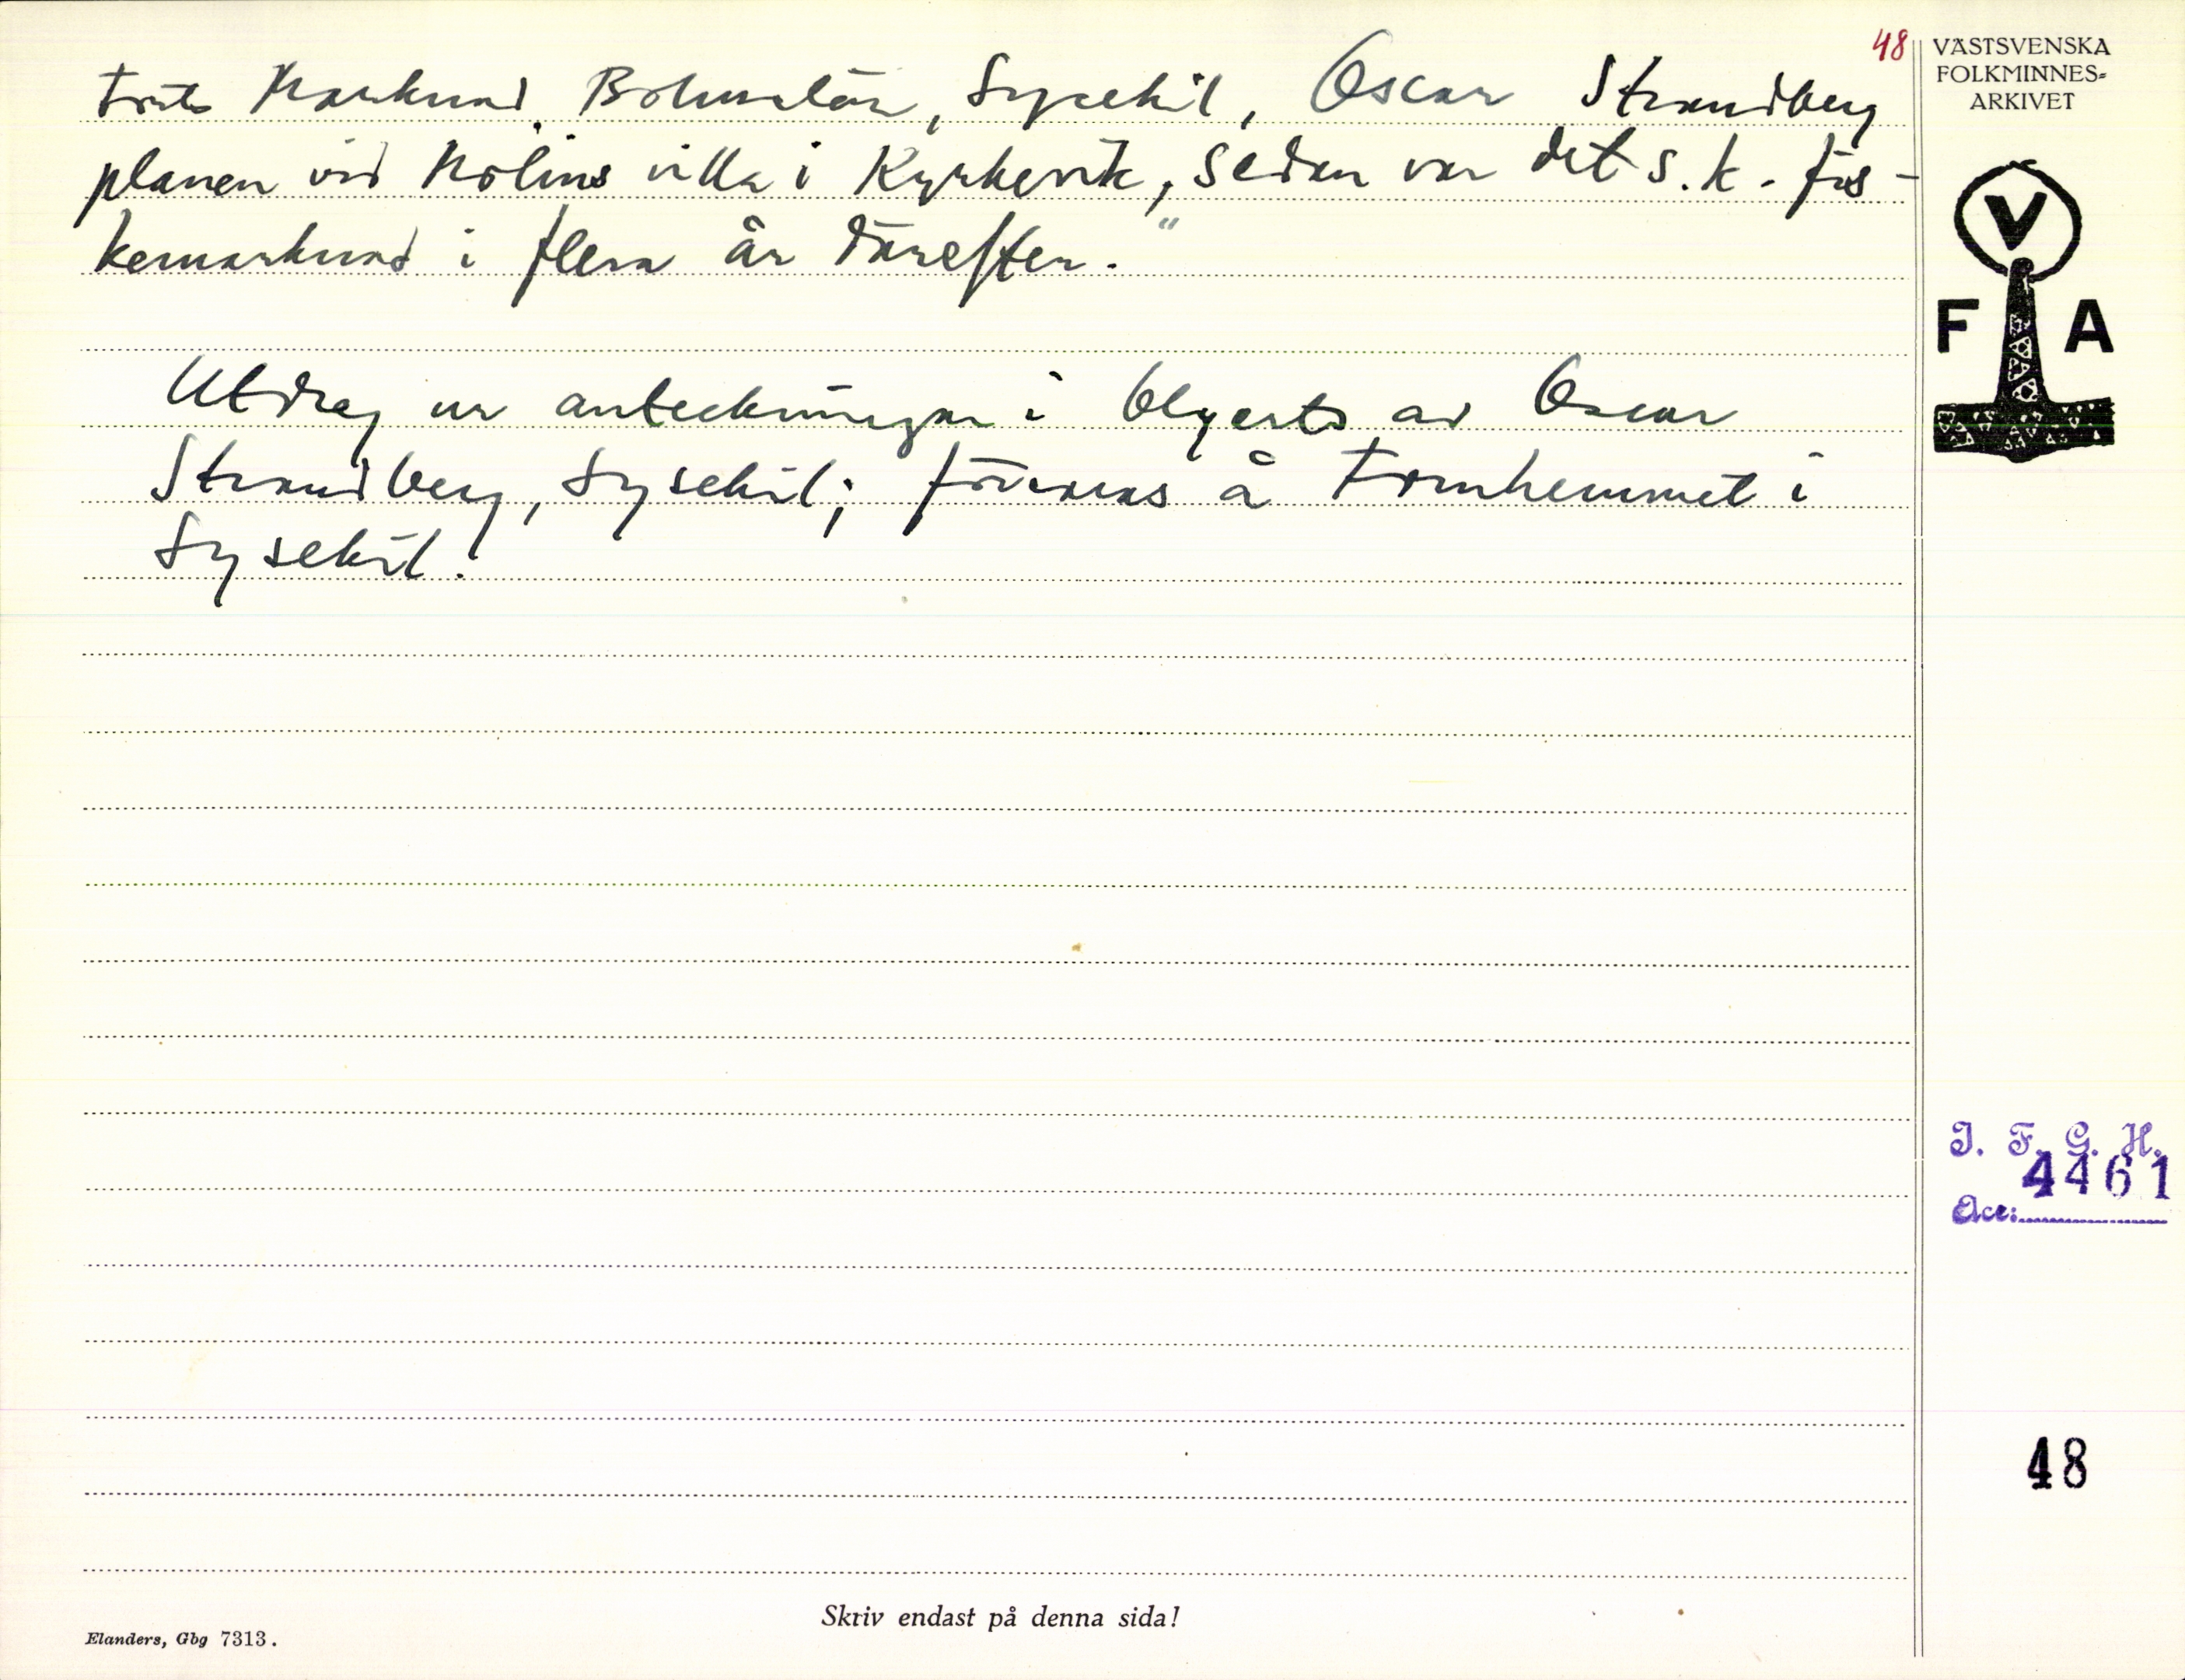 48
VÄSTSVENSKA
FOLKMINNES-
ARKIVET
Forts Marknad, Bohuslän, Lysekil, Oscar Strandberg
planen vid Molins villa i Kyrkevik, Sedan var det s.k. fis-
kemarknad i flera år därefter."
V
F A
Utdrag ur anteckningar i av Oscar
Strandberg, Lysekil; förvaras å Fornhemmet i
Lysekil.
I. F. G. H.
4461
Acc:
48
Skriv endast på denna sida!
Elanders, Gbg 7313.